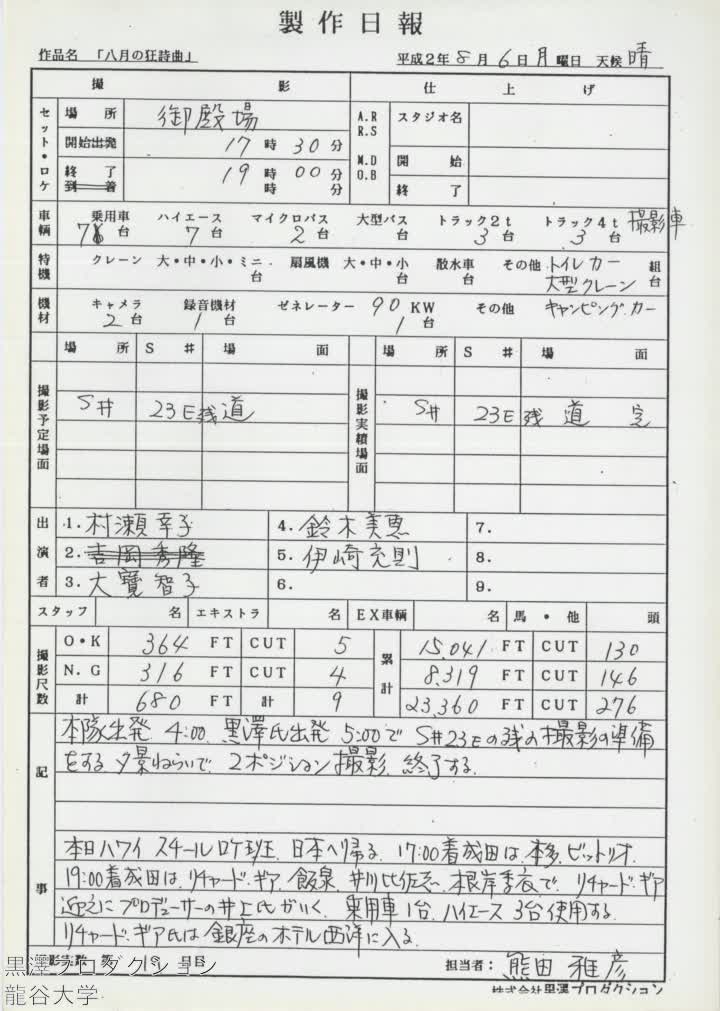 製作日報
作品名 「八月の狂詩曲」 平成2年8月6日月曜日 天候 晴
撮影 仕上げ
セット・ロケ 場所 御殿場 A.R R.S スタジオ名
開始出発 17時30分 M.D O.B 開始
終了 19時00分 終了
到着 時 分
車輌 乗用車 ハイエース マイクロバス 大型バス トラック2t トラック4t 撮影車
7台 7台 2台 台 3台 3台
特機 クレーン 大・中・小・ミニ 扇風機 大・中・小 散水車 その他 トイレカー 組
台 台 台 大型クレーン 台
機材 キャメラ 録音機材 ゼネレーター 90KW その他 キャンピングカー
2台 1台 1台
場所 S# 場面 場所 S# 場面
撮影予定場面 S# 23E残 道 撮影実績場面 S# 23E残 道 完
出演者 1.村瀬幸子 4.鈴木美恵 7.
2.吉岡秀隆 5.伊崎充則 8.
3.大寶智子 6. 9.
スタッフ 名 エキストラ 名 EX車輌 名 馬・他 頭
撮影尺数 O・K 364 FT CUT 5 累計 15,041 FT CUT 130
N.G 316 FT CUT 4 8,319 FT CUT 146
計 680 FT 計 9 23,360 FT CUT 276
記事
本隊出発 4:00、黒澤氏出発 5:00で S#23Eの残の撮影の準備
をする 夕景ねらいで、2ポジション撮影、終了する、
本日ハワイ スチールロケ班、日本へ帰る、17:00着成田は、本多、ビットリオ、
19:00着成田は、リチャード・ギア、飯泉、井川比佐志、根岸季衣で、リチャード・ギア
迎えにプロデューサーの井上氏がいく、乗用車1台、ハイエース3台使用する、
リチャード・ギア氏は銀座のホテル西洋に入る、
担当者: 熊田雅彦
株式会社黒澤プロダクション
黒澤プロダクション
龍谷大学